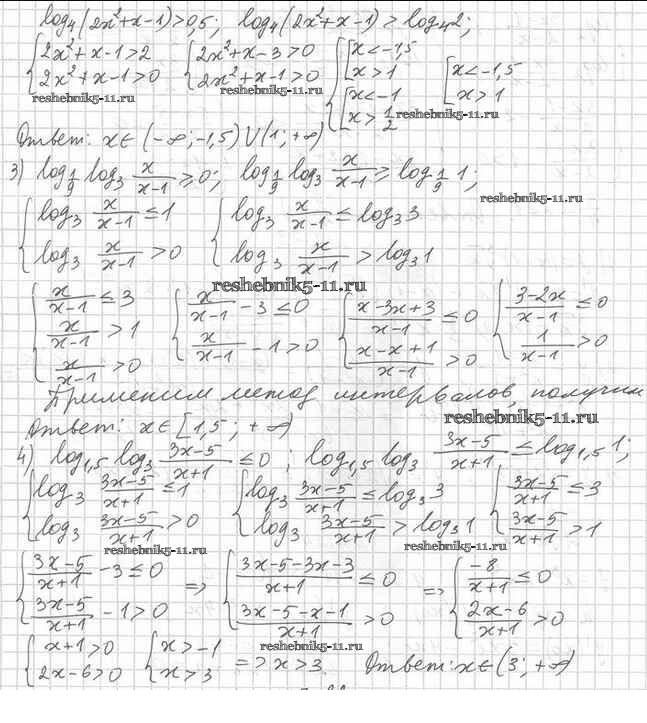 log₄(2x²+x-1)>0,5; log₄(2x²+x-1)>log₄2;
{2x²+x-1>2 {2x²+x-3>0 {[x<-1,5 [x<-1,5
{2x²+x-1>0 {2x²+x-1>0 {[x>1 [x>1
{[x<-1
{[x>1/2
reshebnik5-11.ru reshebnik5-11.ru
Ответ: x∈(-∞;-1,5)∪(1;+∞)
3) log_{1/9} log₃ x/(x-1) ≥0; log_{1/9} log₃ x/(x-1) ≥ log_{1/9} 1;
reshebnik5-11.ru
{log₃ x/(x-1) ≤1 {log₃ x/(x-1) ≤ log₃3
{log₃ x/(x-1) >0 {log₃ x/(x-1) > log₃1
reshebnik5-11.ru
{x/(x-1) ≤3 {x/(x-1) -3≤0 {(x-3x+3)/(x-1) ≤0 {(3-2x)/(x-1) ≤0
{x/(x-1) >1 {x/(x-1) -1>0 {(x-x+1)/(x-1) >0 {1/(x-1) >0
{x/(x-1) >0
Применим метод интервалов, получим
reshebnik5-11.ru
Ответ: x∈[1,5;+∞)
4) log₁,₅ log₃ (3x-5)/(x+1) ≤0; log₁,₅ log₃ (3x-5)/(x+1) ≤ log₁,₅ 1;
{log₃ (3x-5)/(x+1) ≤1 {log₃ (3x-5)/(x+1) ≤ log₃3 {(3x-5)/(x+1) ≤3
{log₃ (3x-5)/(x+1) >0 {log₃ (3x-5)/(x+1) > log₃1 {(3x-5)/(x+1) >1
reshebnik5-11.ru reshebnik5-11.ru
{(3x-5)/(x+1) -3≤0 => {(3x-5-3x-3)/(x+1) ≤0 => {-8/(x+1) ≤0
{(3x-5)/(x+1) -1>0 {(3x-5-x-1)/(x+1) >0 {(2x-6)/(x+1) >0
reshebnik5-11.ru
{x+1>0 {x>-1 => x>3. Ответ: x∈(3;+∞)
{2x-6>0 {x>3